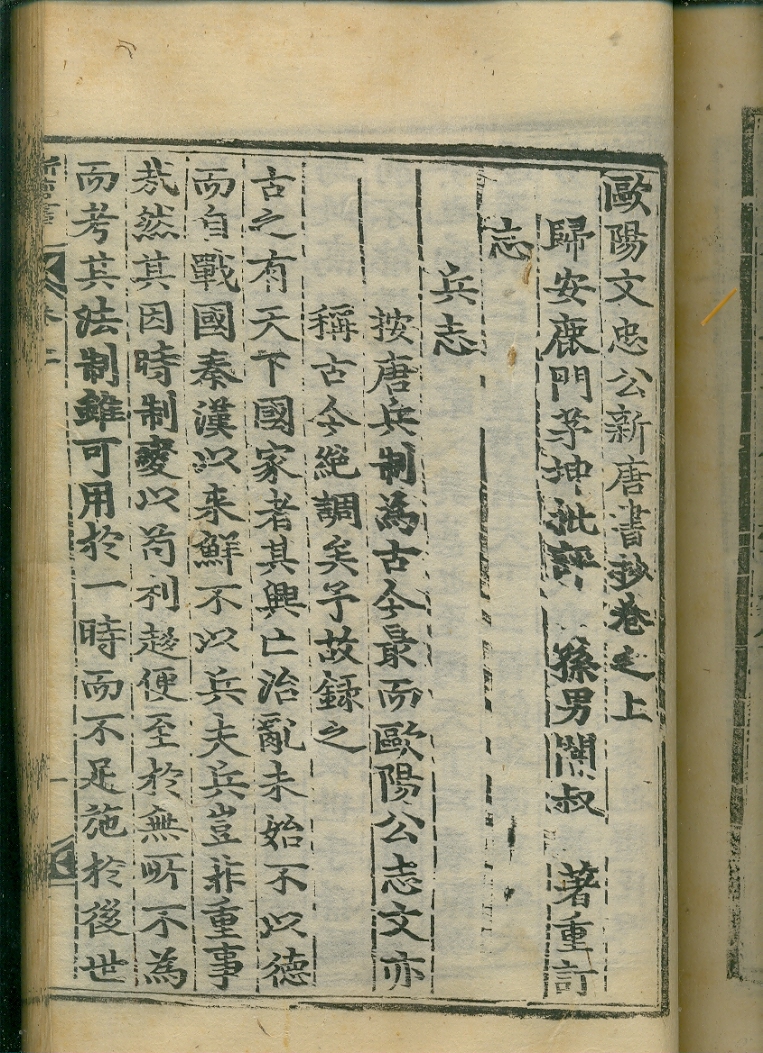 歐陽文忠公新唐書抄卷之上
歸安鹿門茅坤批評 孫男闇叔 著重訂
志
兵志
按唐兵制為古今最而歐陽公志文亦
稱古今絕調矣予故錄之
古之有天下國家者其興亡治亂未始不以德
而自戰國秦漢以来鮮不以兵夫兵豈非重事
㢤然其因時制變以苟利趍便至於無所不為
而考其法制雖可用於一時而不足施於後世